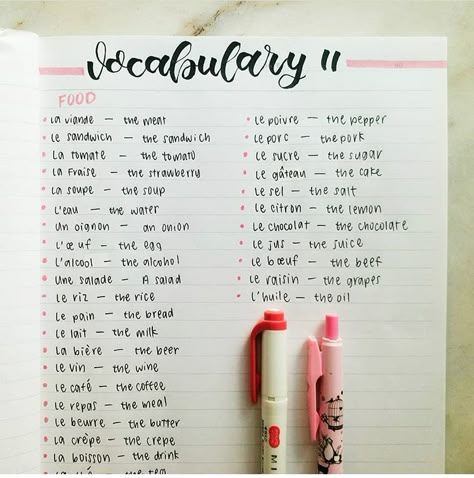 Vocabulary 11
FOOD
La viande — the meat
Le sandwich — the sandwich
La tomate — the tomato
La fraise — the strawberry
La soupe — the soup
L'eau — the water
Un oignon — an onion
L'œuf — the egg
L'alcool — the alcohol
Une salade — A salad
Le riz — the rice
Le pain — the bread
Le lait — the milk
La bière — the beer
Le vin — the wine
Le café — the coffee
Le repas — the meal
Le beurre — the butter
La crêpe — the crepe
La boisson — the drink
Le poivre — the pepper
Le porc — the pork
Le sucre — the sugar
Le gâteau — the cake
Le sel — the salt
Le citron — the lemon
Le chocolat — the chocolate
Le jus — the juice
Le bœuf — the beef
Le raisin — the grapes
L'huile — the oil